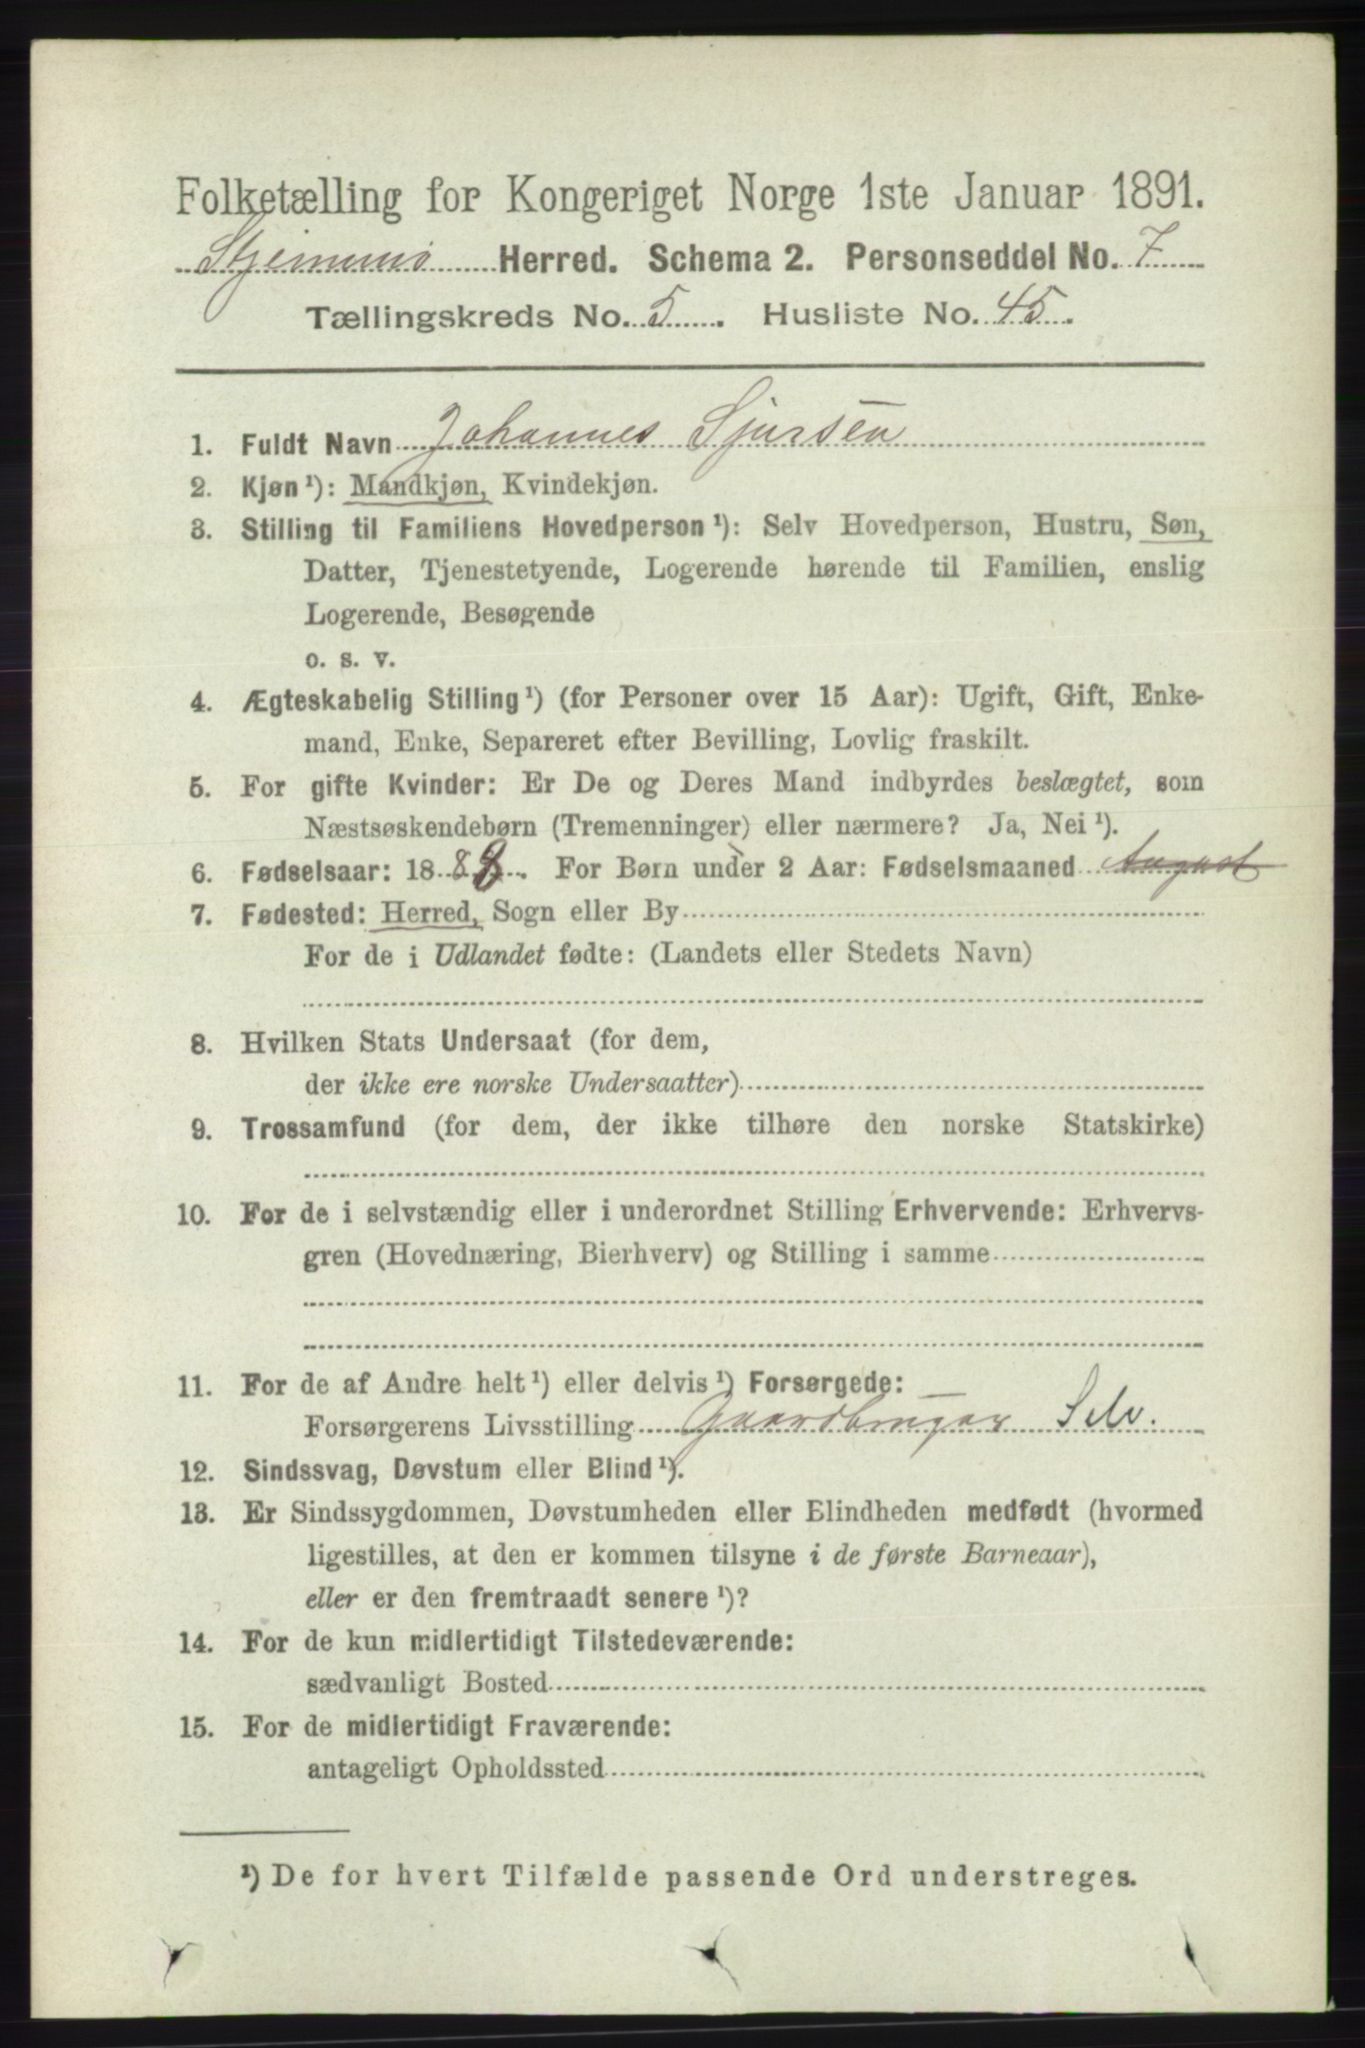 Folketælling for Kongeriget Norge 1ste Januar 1891.
Stjernnø Herred. Schema 2. Personseddel No. 7
Tællingskreds No. 5. Husliste No. 45.
1. Fuldt Navn Johannes Sjursen
2. Kjøn ¹): Mandkjøn, Kvindekjøn.
3. Stilling til Familiens Hovedperson ¹): Selv Hovedperson, Hustru, Søn,
Datter, Tjenestetyende, Logerende hørende til Familien, enslig
Logerende, Besøgende
o. s. v.
4. Ægteskabelig Stilling ¹) (for Personer over 15 Aar): Ugift, Gift, Enke-
mand, Enke, Separeret efter Bevilling, Lovlig fraskilt.
5. For gifte Kvinder: Er De og Deres Mand indbyrdes beslægtet, som
Næstsøskendebørn (Tremenninger) eller nærmere? Ja, Nei ¹).
6. Fødselsaar: 1888. For Børn under 2 Aar: Fødselsmaaned August
7. Fødested: Herred, Sogn eller By
For de i Udlandet fødte: (Landets eller Stedets Navn)
8. Hvilken Stats Undersaat (for dem,
der ikke ere norske Undersaatter)
9. Trossamfund (for dem, der ikke tilhøre den norske Statskirke)
10. For de i selvstændig eller i underordnet Stilling Erhvervende: Erhvervs-
gren (Hovednæring, Bierhverv) og Stilling i samme
11. For de af Andre helt ¹) eller delvis ¹) Forsørgede:
Forsørgerens Livsstilling Gaardbruger Selv.
12. Sindssvag, Døvstum eller Blind ¹).
13. Er Sindssygdommen, Døvstumheden eller Blindheden medfødt (hvormed
ligestilles, at den er kommen tilsyne i de første Barneaar),
eller er den fremtraadt senere ¹)?
14. For de kun midlertidigt Tilstedeværende:
sædvanligt Bosted
15. For de midlertidigt Fraværende:
antageligt Opholdssted
¹) De for hvert Tilfælde passende Ord understreges.